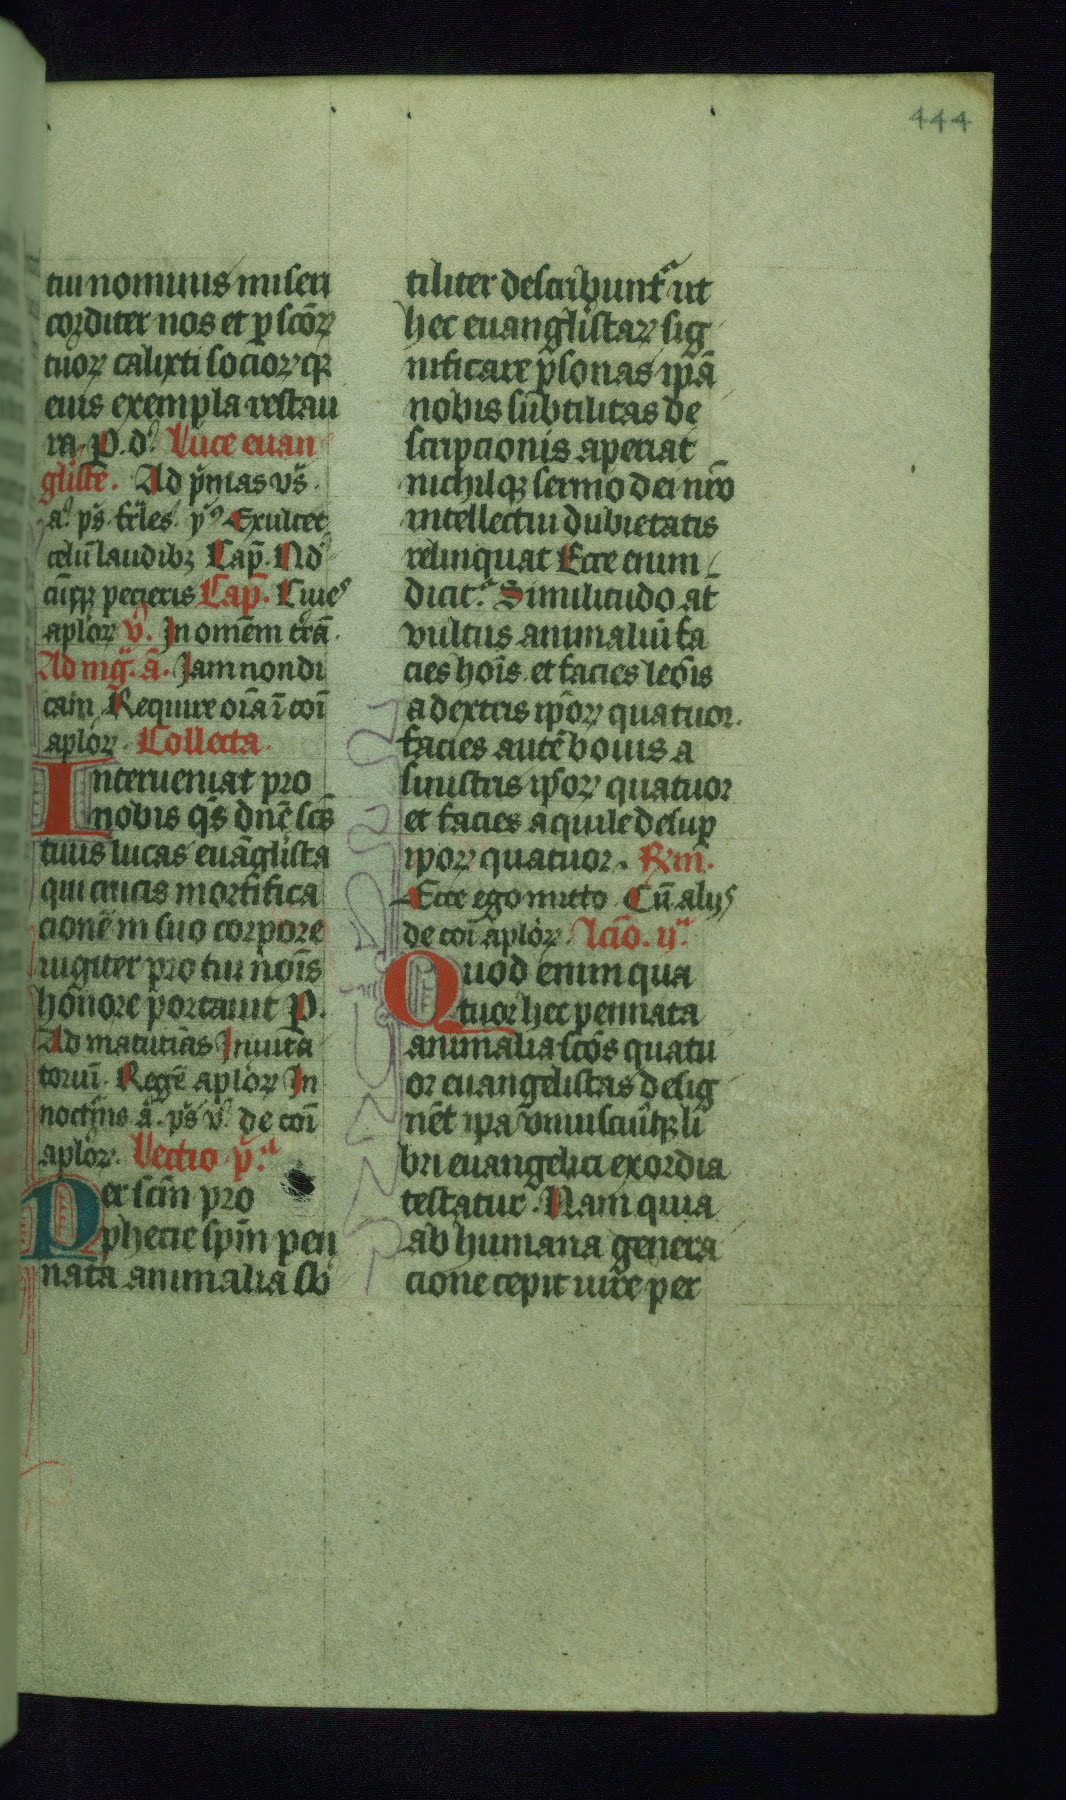 444
tui nominis miseri
corditer nos et ꝑ scōꝝ
tuoꝝ calixti socioꝝqꝫ
eius exempla restau
ra. P. d. Luce euan
gliste. Ad p̄mas vs̄.
a. ps̄. feͥles. yꝰ Exultet
celū laudibꝫ Cap̄. Ad
cūqꝫ pecieris Cap̄. Ciues
aplōꝝ v̄. In omēm terrā.
Ad mgͣ. ā. Iam non di
cam Require oīa ī coī
aplōꝝ. Collecta.
Interueniat pro
nobis qs̄ dnē scs̄
tuus lucas euāglista
qui crucis mortifica
cionē in suo corpore
iugiter pro tui noīs
honore portauit P.
Ad matutinas Inuita
toriū. Regē aplōꝝ In
noctͥnis ā. ps̄ v̄. de coī
aplōꝝ. Lectio pͣ.
Per scīm pro
phecie spm̄ pen
nata animalia sb
tiliter describuntͬ ut
hec euanglistaꝝ sig
nificare ꝑsonas ipā
nobis subtilitas de
scripcionis aperiat
nichilqꝫ sermo dei nrō
intellectui dubietatis
relinquat Ecce enim
dicit. Similitudo at
vultus animaliū fa
cies hoīs et facies leōis
a dextris ipōꝝ quatuor.
facies autē bouis a
sinistris ipsoꝝ quatuor
et facies aquile desuꝑ
ipoꝝ quatuor. Rm̄.
Ecce ego mitto Cū alijs
de coī aplōꝝ. Lcīo. ijͣ.
Quod enim qua
tuor hec pennata
animalia scōs quatu
or euangelistas desig
nēt ipa vniuscuiusqꝫ li
bri euangelici exordia
testatur. Nam quia
ab humana genera
cione cepit iure per